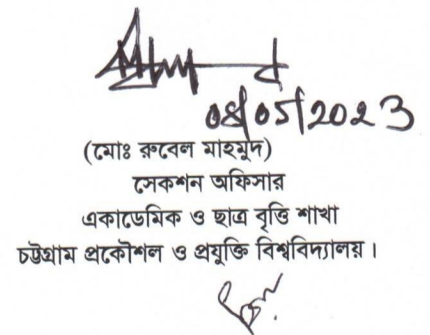 08/05/2023
(মোঃ রুবেল মাহমুদ)
সেকশন অফিসার
একাডেমিক ও ছাত্র বৃত্তি শাখা
চট্টগ্রাম প্রকৌশল ও প্রযুক্তি বিশ্ববিদ্যালয়।